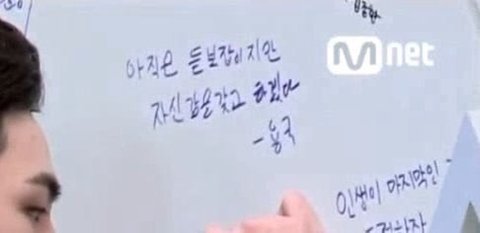 Mnet
아직은 듣보잡이지만
자신감을 갖고 하겠다
- 용국
인생이 마지막인